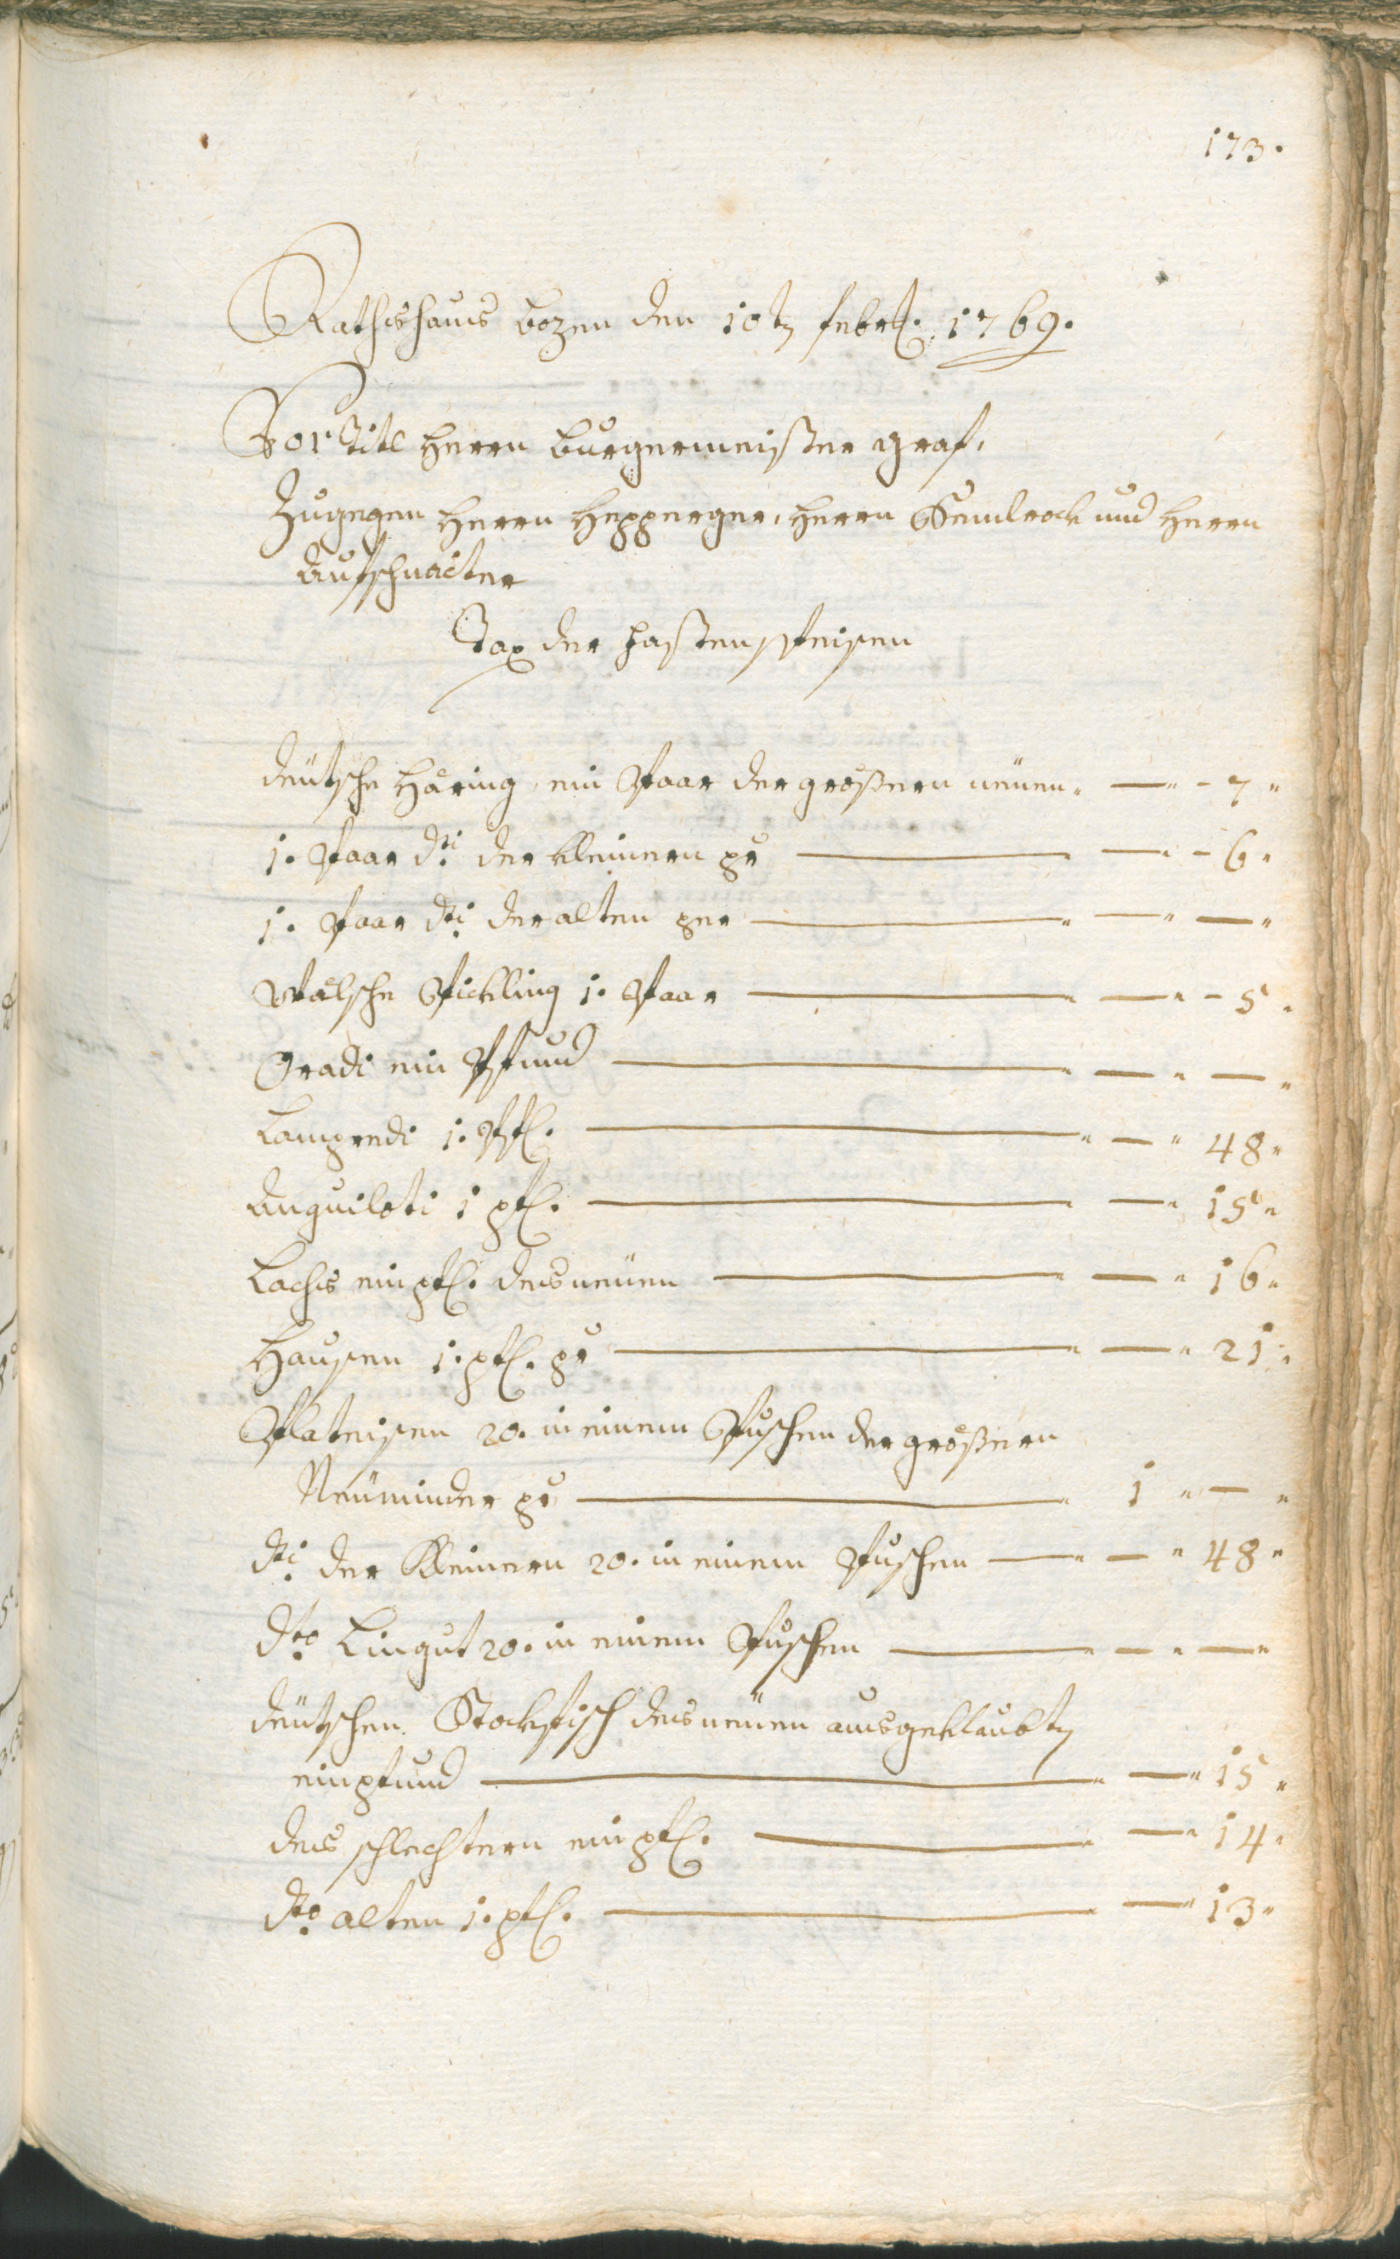 173.
Rathshaus Bozen den 10tn Febr. 1769.
Vor Titl Herrn Burgermeister Graf,
Zugegen Herrn Hepperger, Herrn Hemlrock und Herrn
Aufschnaiter
Tax der Fastenspeisen
Deütsche Häring, ein Paar der größern neüen. — " - 7 "
1. Paar dti der kleinern pr — — " - 6 "
1. Paar dti der alten per — " — " — "
Wälsche Pickling 1. Paar — " — " - 5 "
Gradi ein Pfund — " — " — "
Lampredi 1. Pf. — " — " 48 "
Anguiloti 1 pf. — " — " 15 "
Lachs ein pf. des neüen — " — " 16 "
Hausen 1. pf. pr — " — " 21 "
Plateisen 20. in einem Puschen der größern
Neüminder pr — " 1 " — "
dti der Kleinern 20. in einem Puschen — " — " 48 "
dto Lingut 20. in einem Puschen — " — " — "
Deütschen Stockfisch des neüen ausgeklaubtn
ein pfund — " — " 15 "
des schlechtern ein pf. — " — " 14 "
dto alten 1. pf. — " — " 13 "